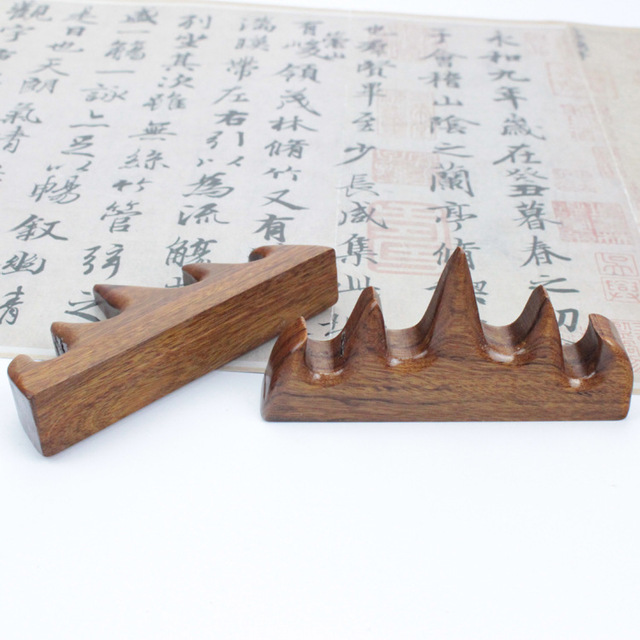 永和九年歲在癸丑暮春之初
于會稽山陰之蘭亭脩禊
也羣賢畢至少長咸集此
崇山
有峻領茂林脩竹又有
湍暎帶左右引以為流觴
列坐其次雖無絲竹管弦之
盛一觴一詠亦足以暢敘幽
是日也天朗氣清
觀宇